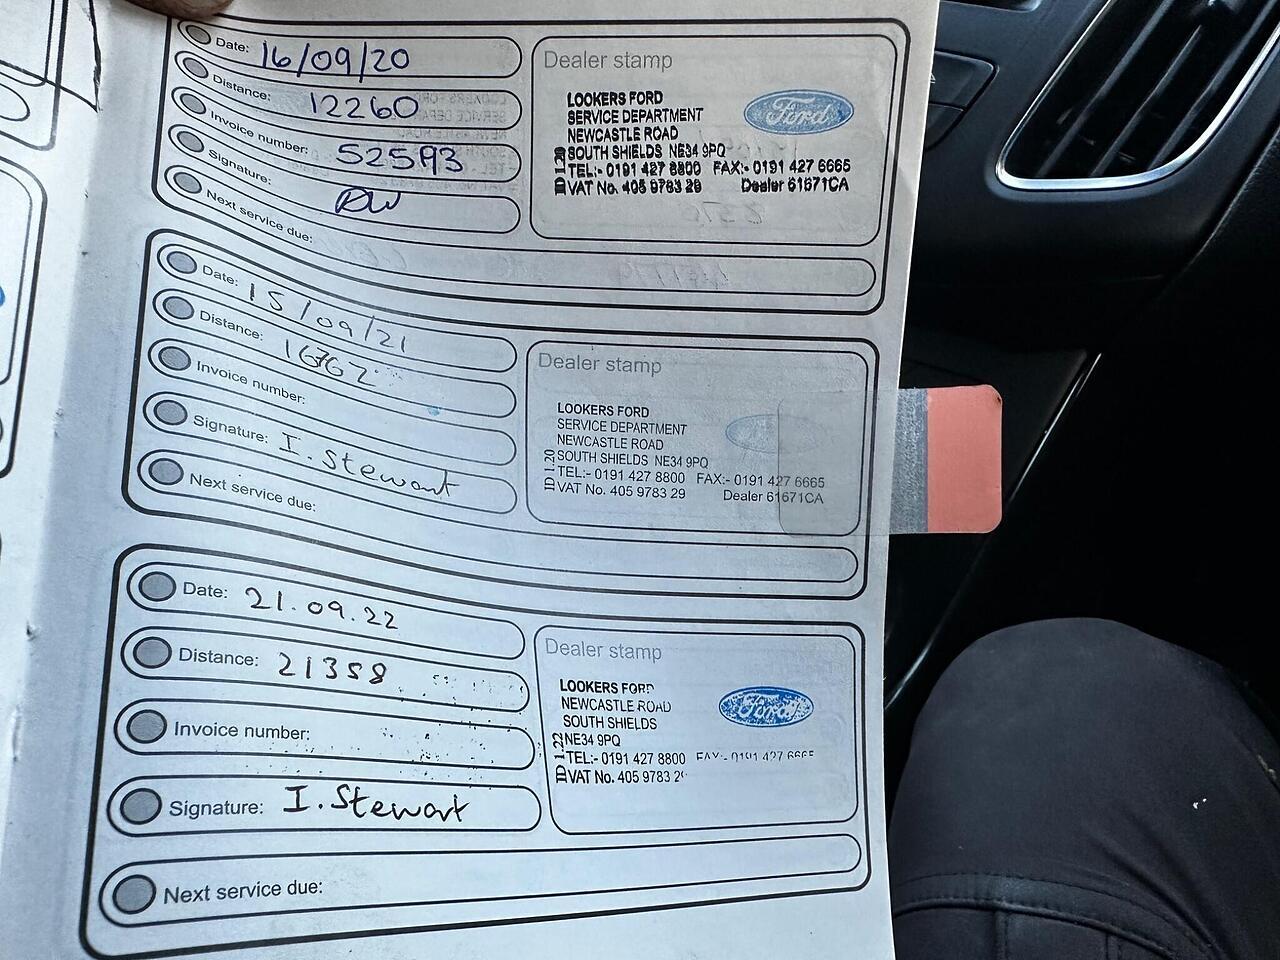 Date: 16/09/20
Distance: 12260
Invoice number: 52593
Signature: RW
Next service due:
Dealer stamp
LOOKERS FORD
SERVICE DEPARTMENT
NEWCASTLE ROAD
SOUTH SHIELDS NE34 9PQ
TEL:- 0191 427 8800 FAX:- 0191 427 6665
VAT No. 405 9783 29 Dealer 61671CA
ID 1.20
Ford
Date: 15/09/21
Distance: 16762
Invoice number:
Signature: I. Stewart
Next service due:
Dealer stamp
LOOKERS FORD
SERVICE DEPARTMENT
NEWCASTLE ROAD
SOUTH SHIELDS NE34 9PQ
TEL:- 0191 427 8800 FAX:- 0191 427 6665
VAT No. 405 9783 29 Dealer 61671CA
ID 1.20
Date: 21.09.22
Distance: 21358
Invoice number:
Signature: I. Stewart
Next service due:
Dealer stamp
LOOKERS FORD
NEWCASTLE ROAD
SOUTH SHIELDS
NE34 9PQ
TEL:- 0191 427 8800 FAX:- 0191 427 6665
VAT No. 405 9783 2
ID 1.22
Ford